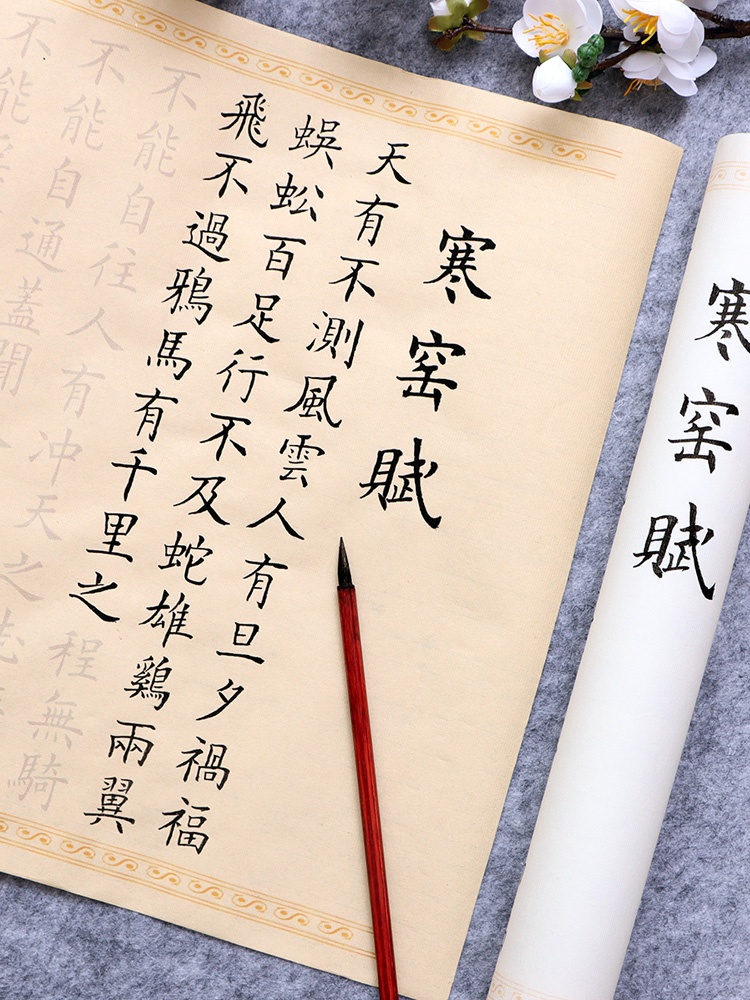 寒窑賦
天有不測風雲人有旦夕禍福
蜈蚣百足行不及蛇雄鷄兩翼
飛不過鴉馬有千里之程無騎
不能自往人有冲天之志
不能自通蓋聞
不能
寒窑賦